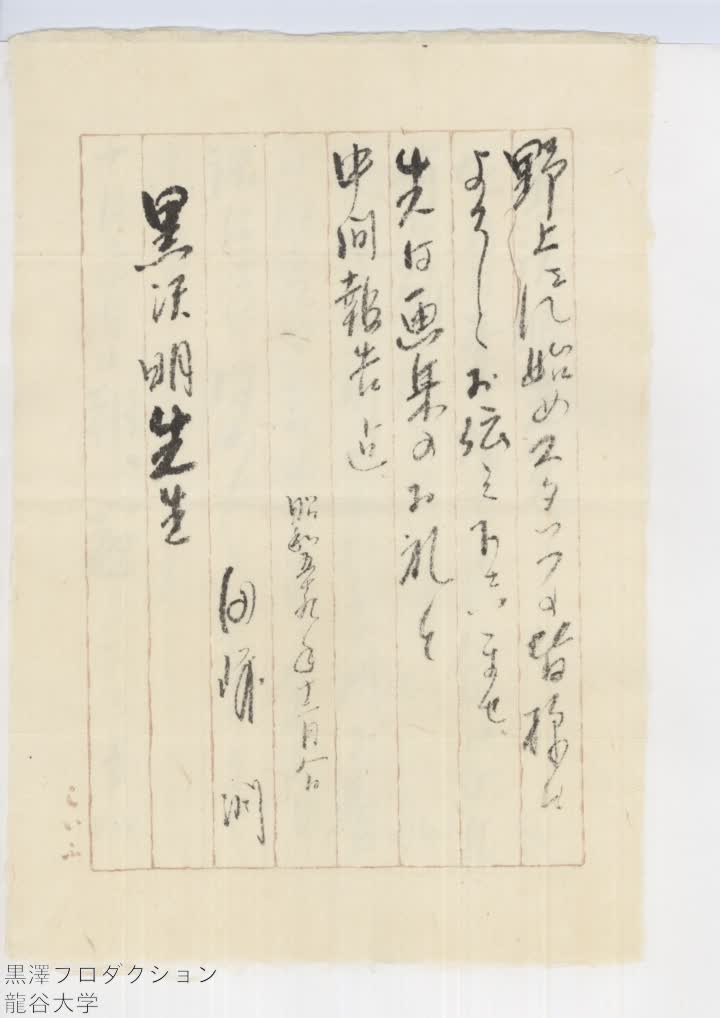 野上さん始めスタッフの皆様に
よろしくお伝え下さいませ
先は画集のお礼と
中間報告迄
昭和五十九年十二月
田 淵
黒沢明先生
黒澤プロダクション
龍谷大学